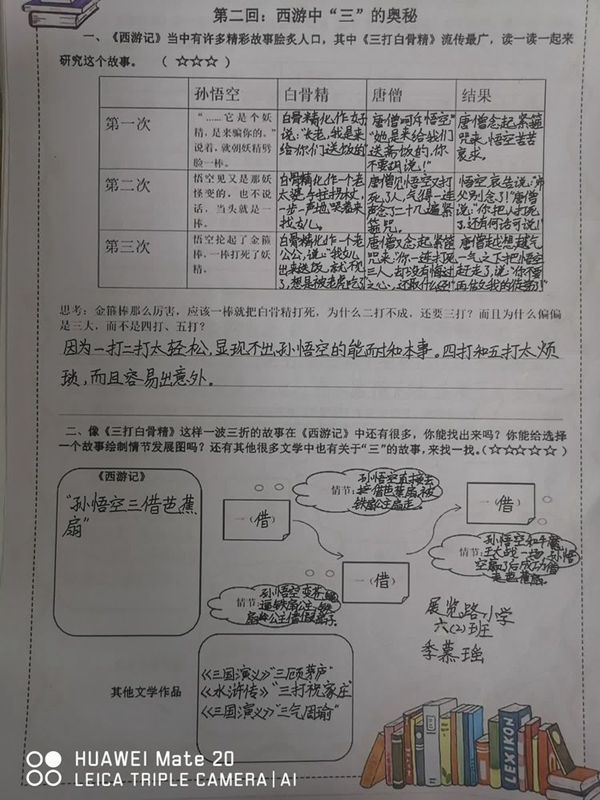 第二回：西游中“三”的奥秘
一、《西游记》当中有许多精彩故事脍炙人口，其中《三打白骨精》流传最广，读一读一起来
研究这个故事。（☆☆☆）
孙悟空 白骨精 唐僧 结果
第一次
“……它是个妖
精，是来骗你的。”
说着，就朝妖精劈
脸一棒。
白骨精化作好
说：“长老，我是来
给你们送饭的
唐僧呵斥悟空“
“她是来给我们
送斋饭的，你
不要胡说！”
唐僧念起紧箍
咒来，悟空苦苦
哀求。
第二次
悟空见又是那妖
怪变的，也不说
话，当头就是一
棒。
白骨精化作一个老
太婆，手拄拐杖，
一步一声地哭着来
找女儿。
唐僧见悟空又打
死了人，气得一连
声念了二十几遍紧
箍咒。
悟空哀告说：“师
父别念了！”唐僧
说：“你把人打死
了，还有何话可说！”
第三次
悟空抡起了金箍
棒，一棒打死了妖
精。
白骨精化作一个老
公公，说：“我女儿
出来送饭，就不见
了，想是被老虎吃了
唐僧又念起紧箍
咒来：“你一连打死
三人，却没有悔过
之心，还取什么经！”
唐僧越想越气
一气之下把悟空
赶走了，说：“你不要
再做我的徒弟了！”
思考：金箍棒那么厉害，应该一棒就把白骨精打死，为什么二打不成，还要三打？而且为什么偏偏
是三大，而不是四打、五打？
因为一打二打太轻松，显现不出孙悟空的能耐和本事。四打和五打太烦
琐，而且容易出意外。
二、像《三打白骨精》这样一波三折的故事在《西游记》中还有很多，你能找出来吗？你能给选择
一个故事绘制情节发展图吗？还有其他很多文学中也有关于“三”的故事，来找一找。（☆☆☆☆☆）
《西游记》
“孙悟空三借芭蕉
扇”
一（借）
孙悟空直接去
情节：找借芭蕉扇，被
铁扇公主扇走。
一（借）
孙悟空和牛魔
情节：王大战一场，孙悟
空扇了后成功借
走芭蕉扇。
一（借）
情节：
扇公主借假扇子。
展览路小学
六（2）班
季慕瑶
其他文学作品
《三国演义》“三顾茅庐”
《水浒传》“三打祝家庄”
《三国演义》“三气周瑜”
LEXIKON
HUAWEI Mate 20
LEICA TRIPLE CAMERA | AI